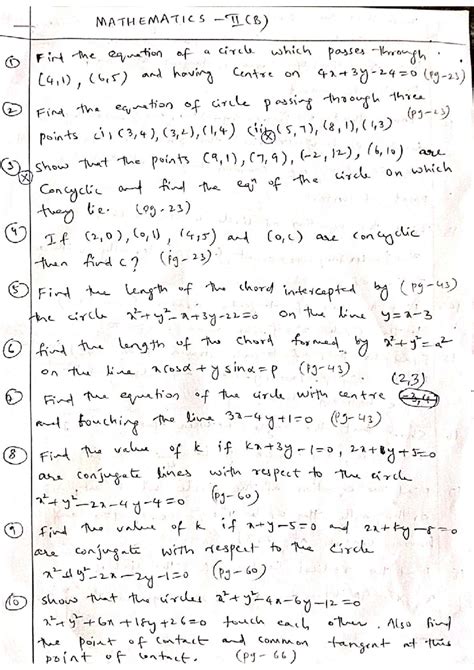 MATHEMATICS - II (B)
① Find the equation of a circle which passes through
(4,1), (6,5) and having centre on 4x+3y-24=0 (pg-23)
② Find the equation of circle passing through three (pg-23)
points (i) (3,4), (3,2), (1,4) (ii) (5,7), (8,1), (1,3)
③ Show that the points (9,1), (7,9), (-2,12), (6,10) are
Concyclic and find the eqn of the circle on which
they lie. (pg-23)
④ If (2,0), (0,1), (4,5) and (0,c) are concyclic
then find c? (pg-23)
⑤ Find the length of the chord intercepted by (pg-43)
the circle x²+y²-x+3y-22=0 on the line y=x-3
⑥ find the length of the chord formed by x²+y²=a²
on the line x cosα + y sinα = p (pg-43)
(2,3)
Find the equation of the circle with centre
and touching the line 3x-4y+1=0 (pg-43)
⑧ Find the value of k if kx+3y-1=0, 2x+y+5=0
are conjugate lines with respect to the circle
x²+y²-2x-4y-4=0 (pg-60)
⑨ Find the value of k if x+y-5=0 and 2x+ky-8=0
are conjugate with respect to the circle
x²+y²-2x-2y-1=0 (pg-60)
⑩ show that the circles x²+y²-4x-6y-12=0
x²+y²+6x+18y+26=0 touch each other. Also find
the point of contact and common tangent at this
point of contact. (pg-66)